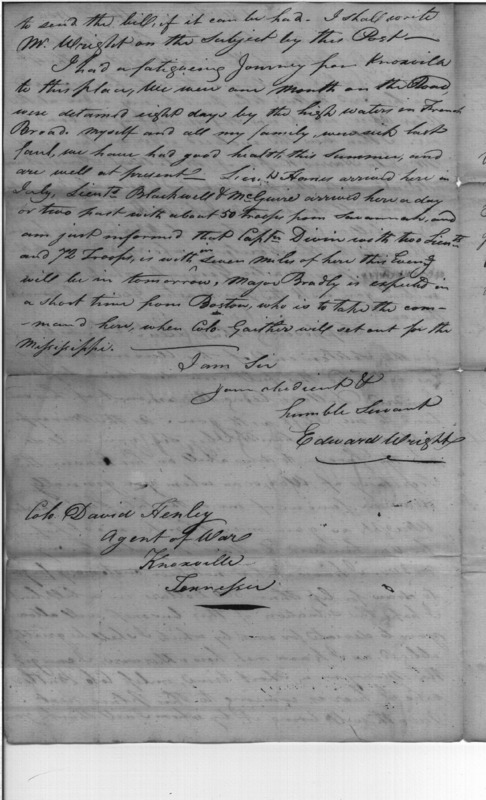 to send the bill, if it can be had. I shall write
Mr. Wright on the subject by this Post—
I had a fatigueing Journey from Knoxville
to this place, We were one month on the Road
were detained eight days by the high waters in French
Broad. myself and all my family, were sick last
faul, we have had good health this Summer, and
are well at present Lieut. arrived here in
July, Lieuts. Blackwell & McGuire arrived here a day
or two past with about 50 troops from Savannah, and
am just informed that Captn. Divin with two Lieuts
and 72 Troops, is within seven miles of here this Eveng
will be in tomorrow, Major Bradly is expected in
a short time from Boston, who is to take the com-
-mand here, when Colo. Gaither will set out for the
Missisippi.
I am Sir
your obedient &
humble Servant
Edward Wright
Colo David Henley
Agent of War
Knoxville
Tennessee